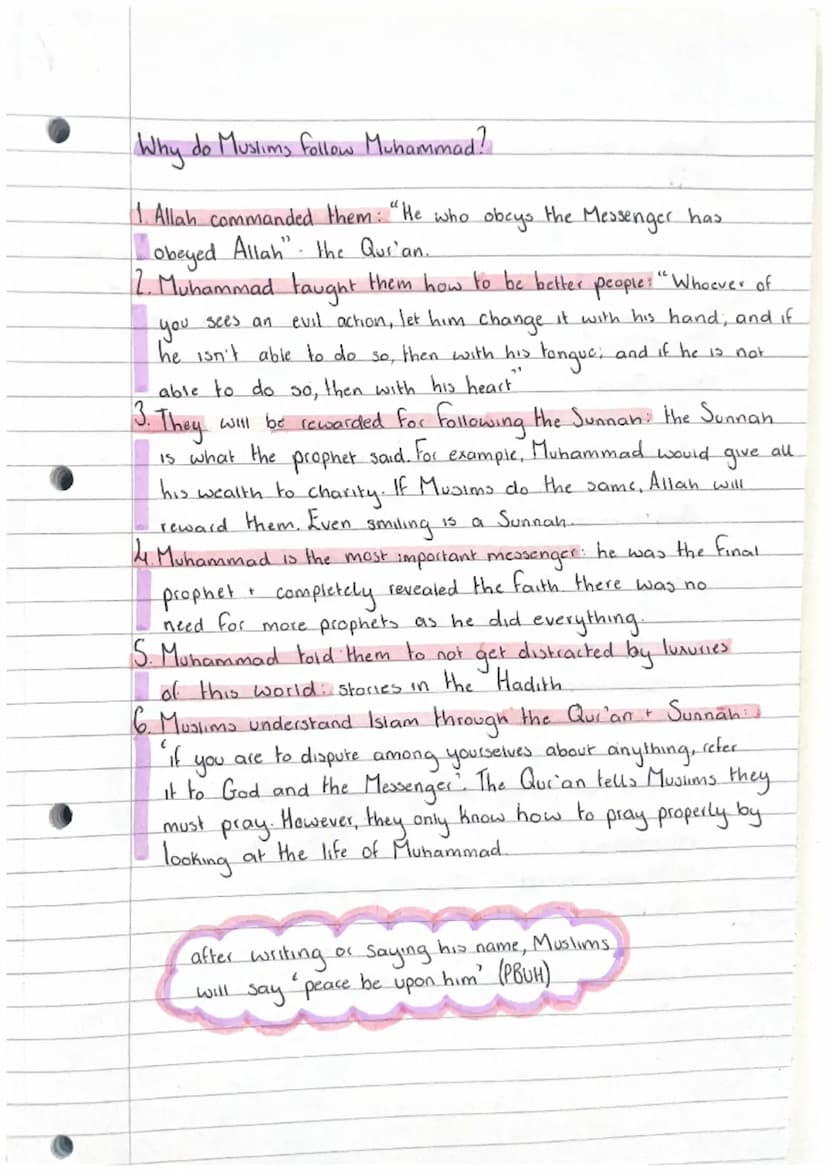 Why do Muslims follow Muhammad?
1. Allah commanded them: "He who obeys the Messenger has
obeyed Allah" - the Qur'an.
2. Muhammad taught them how to be better people: "Whoever of
you sees an evil action, let him change it with his hand; and if
he isn't able to do so, then with his tongue; and if he is not
able to do so, then with his heart"
3. They will be rewarded for following the Sunnah: the Sunnah
is what the prophet said. For example, Muhammad would give all
his wealth to charity. If Muslims do the same, Allah will
reward them. Even smiling is a Sunnah.
4. Muhammad is the most important messenger: he was the final
prophet + completely revealed the faith. there was no
need for more prophets as he did everything.
5. Muhammad told them to not get distracted by luxuries
of this world: stories in the Hadith
6. Muslims understand Islam through the Qur'an + Sunnah:
'if you are to dispute among yourselves about anything, refer
it to God and the Messenger'. The Qur'an tells Muslims they
must pray. However, they only know how to pray properly by
looking at the life of Muhammad.
after writing or saying his name, Muslims
will say 'peace be upon him' (PBUH)